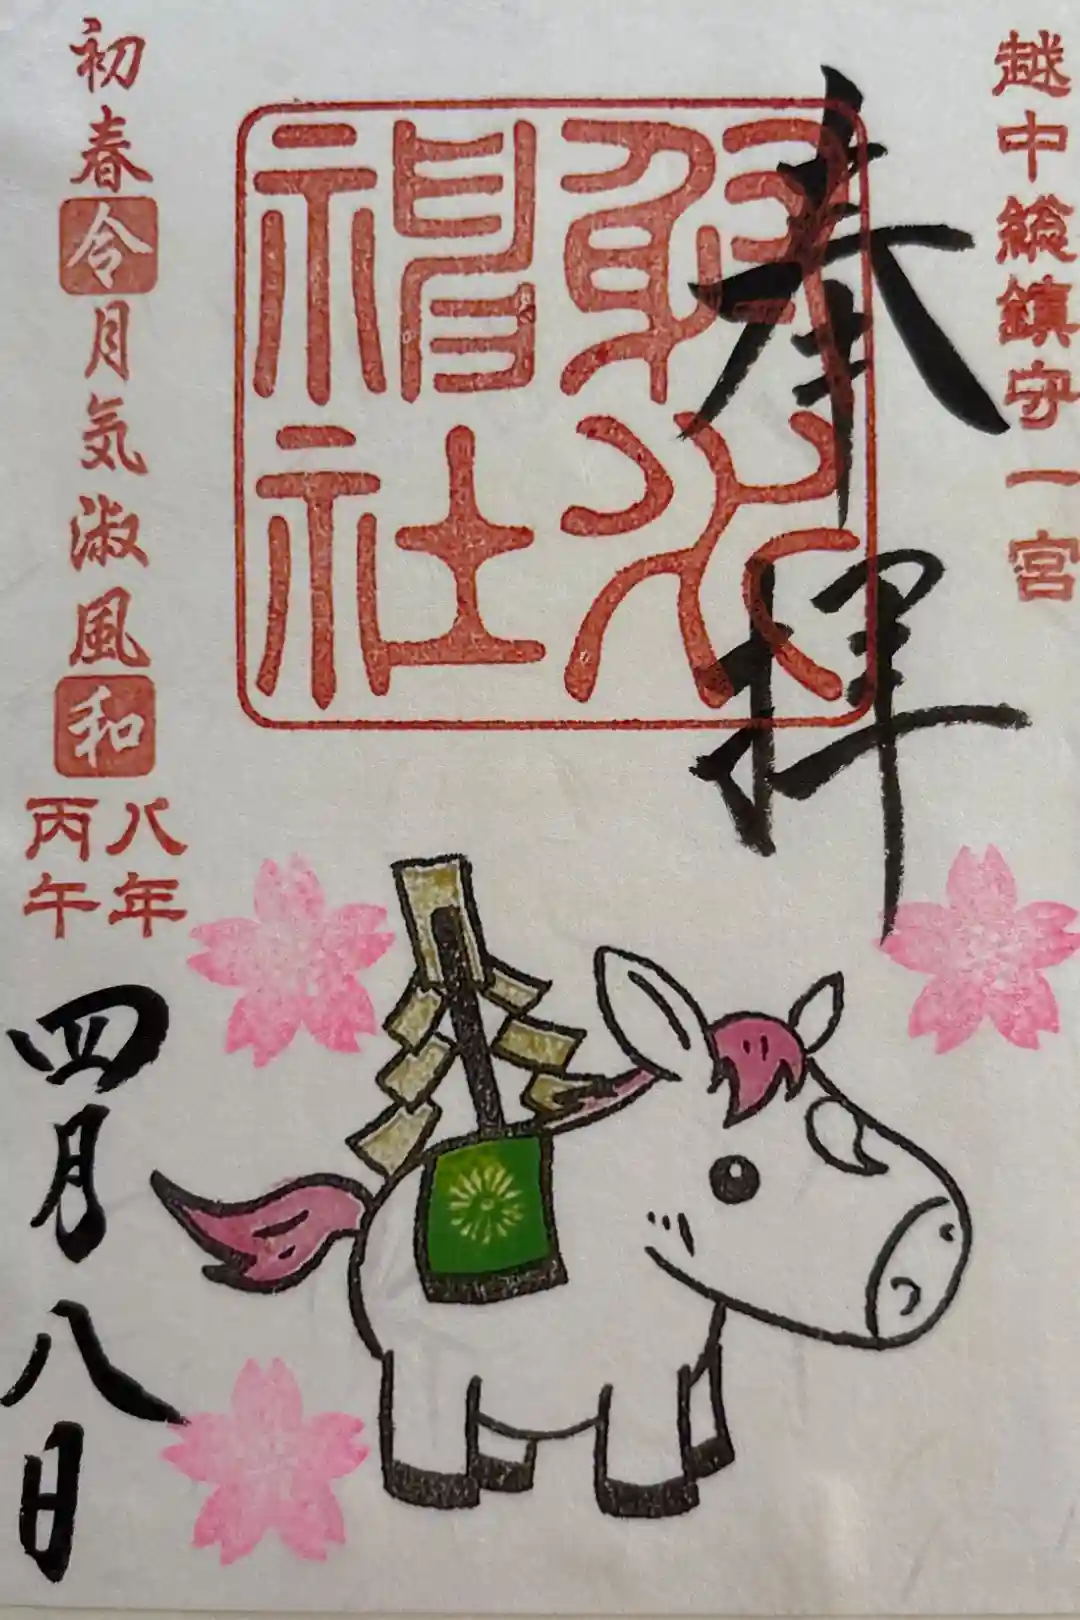 越中総鎮守一宮
奉拝
射水
神社
初春令月気淑風和
八年
丙午
四月八日